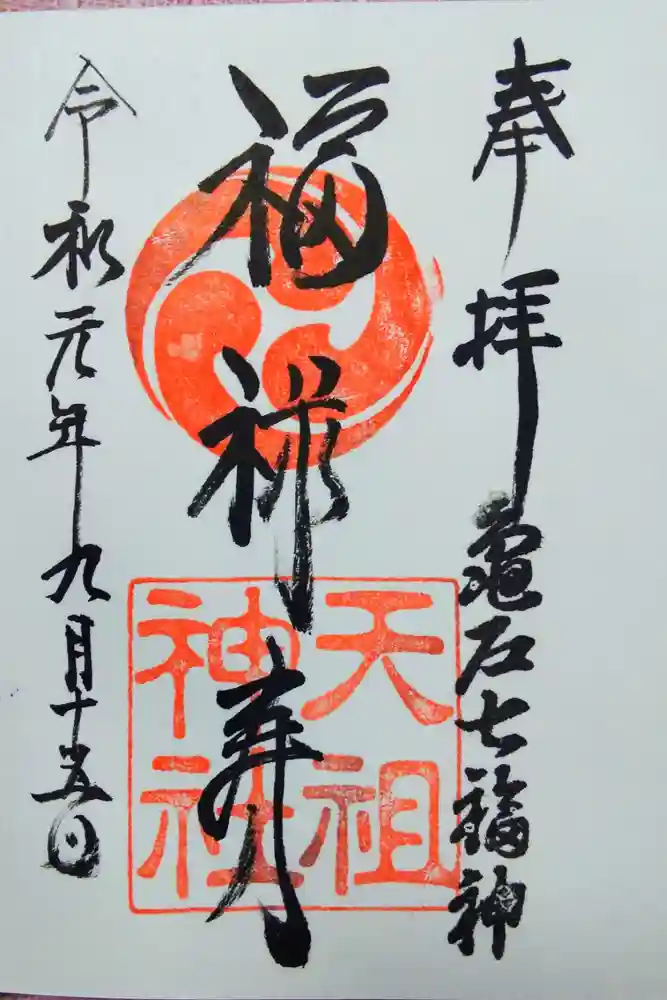 奉拝
亀戸七福神
福禄寿
天祖
神社
令和元年九月十五日